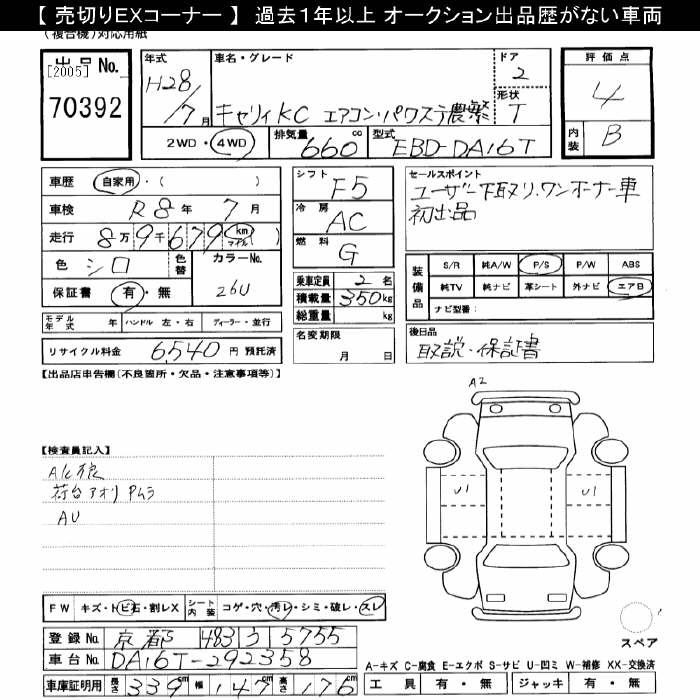 【 売切りEXコーナー 】 過去1年以上 オークション出品歴がない車両
(複合機)対応用紙
出品No.
[2005]
70392
年式
H28/7月
車名・グレード
キャリィKC エアコン・パワステ農繁
ドア
2
形状
T
評価点
4
内装
B
2WD・4WD
排気量
660cc
型式
EBD-DA16T
車歴
自家用・( )
車検
R8年 7月
走行
8万9千679km
マイル( )
色
シロ
色替
カラーNo.
26U
保証書
有・無
モデル年式 年
ハンドル 左・右
ディーラー・並行
リサイクル料金 6,540円 預託済
シフト
F5
冷房
AC
燃料
G
乗車定員 2名
積載量 350kg
総重量 kg
名変期限
月 日
セールスポイント
ユーザー下取り.ワンオーナー車
初出品
装備品
S/R 純A/W P/S P/W ABS
純TV 純ナビ 革シート 外ナビ エアB
ナビ型番:
後日品
取説・保証書
【出品店申告欄(不良箇所・欠品・注意事項等)】
【検査員記入】
荷台アオリ
AU
A2
U1
U1
スペア
FW
キズ・トビ石・割レX
シート内装
コゲ・穴・汚レ・シミ・破レ・スレ
登録No. 京都 483 う 5755
車台No. DA16T-292358
車庫証明用 長さ 339cm 幅 147cm 高さ 176cm
A-キズ C-腐食 E-エクボ S-サビ U-凹ミ W-補修 XX-交換済
工具 有・無 ジャッキ 有・無